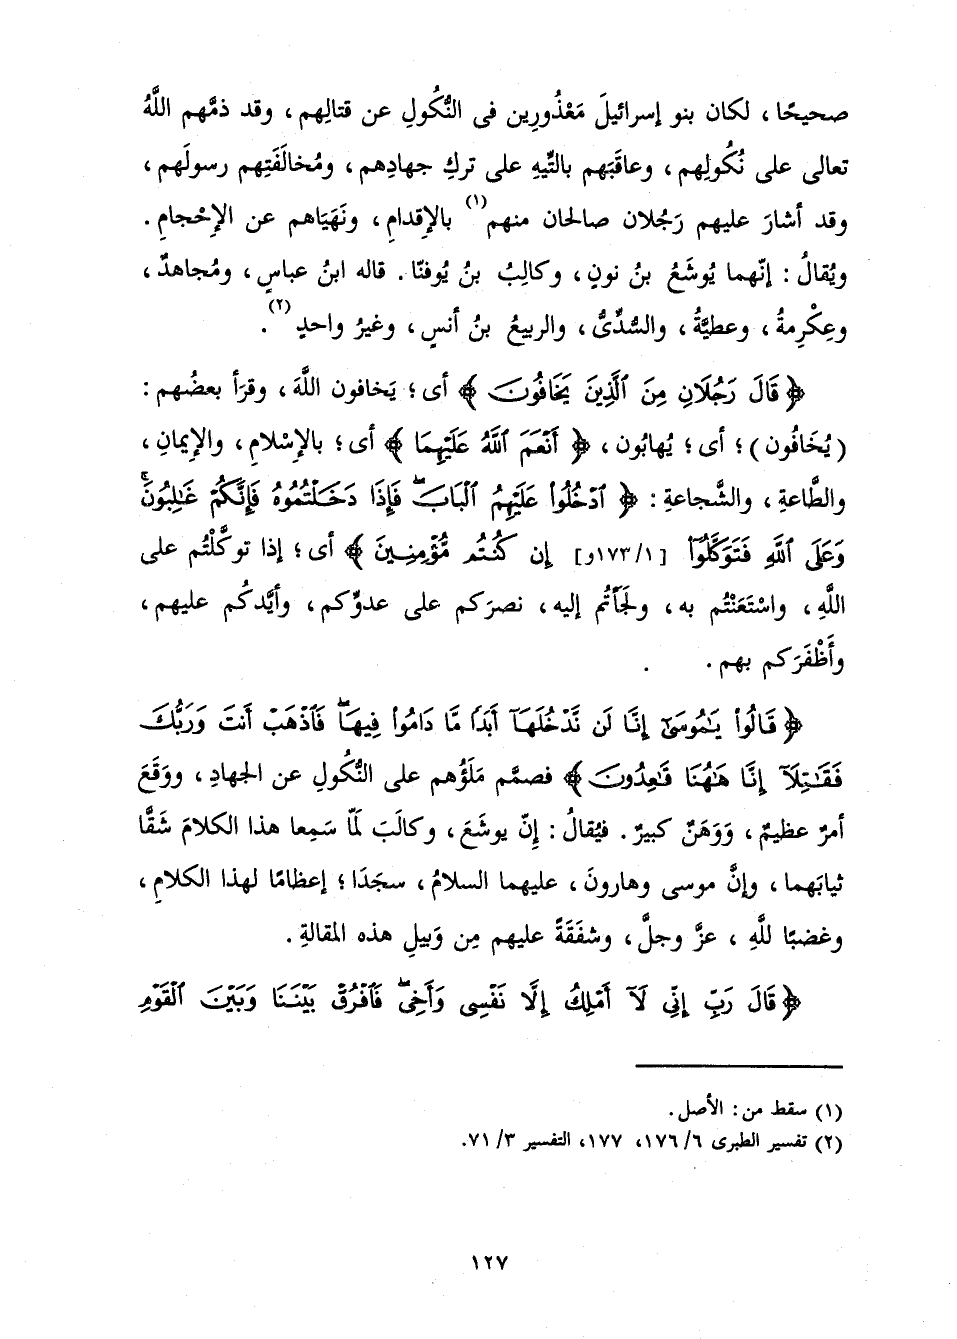 صحيحًا، لكان بنو إسرائيلَ مَعْذُورِين فى النُّكُولِ عن قتالِهم، وقد ذمَّهم اللَّهُ
تعالى على نُكُولِهم، وعاقَبَهم بالتِّيهِ على تركِ جهادِهم، ومُخالَفَتِهم رسولَهم،
وقد أشارَ عليهم رَجُلان صالحان منهم(١) بالإقدامِ، ونَهَيَاهم عن الإحْجامِ.
ويُقالُ: إنّهما يُوشَعُ بنُ نونٍ، وكالِبُ بنُ يُوفنّا. قاله ابنُ عباسٍ، ومُجاهدٌ،
وعِكْرِمةُ، وعطيَّةُ، والسُّدِّىُّ، والربيعُ بنُ أنسٍ، وغيرُ واحدٍ(٢).
﴿ قَالَ رَجُلَانِ مِنَ ٱلَّذِينَ يَخَافُونَ ﴾ أى؛ يَخافون اللَّهَ، وقرَأ بعضُهم:
(يُخَافُون)؛ أى؛ يُهابُون، ﴿ أَنْعَمَ ٱللَّهُ عَلَيْهِمَا ﴾ أى؛ بالإسْلامِ، والإيمانِ،
والطَّاعةِ، والشَّجاعةِ: ﴿ ٱدْخُلُواْ عَلَيْهِمُ ٱلْبَابَۖ فَإِذَا دَخَلْتُمُوهُ فَإِنَّكُمْ غَٰلِبُونَۚ
وَعَلَى ٱللَّهِ فَتَوَكَّلُوٓاْ [١/ ١٧٣و] إِن كُنتُم مُّؤْمِنِينَ ﴾ أى؛ إذا توكَّلْتُم على
اللَّهِ، واسْتَعَنْتُم به، ولَجَأْتُم إليه، نصرَكم على عدوِّكم، وأيَّدكُم عليهم،
وأَظْفَرَكم بهم.
﴿ قَالُواْ يَٰمُوسَىٰٓ إِنَّا لَن نَّدْخُلَهَآ أَبَدًا مَّا دَامُواْ فِيهَاۖ فَٱذْهَبْ أَنتَ وَرَبُّكَ
فَقَٰتِلَآ إِنَّا هَٰهُنَا قَٰعِدُونَ ﴾ فصمَّم مَلَؤُهم على النُّكُولِ عن الجهادِ، ووَقَعَ
أمرٌ عظيمٌ، وَوَهَنٌ كبيرٌ. فيُقالُ: إنّ يوشَعَ، وكالَبَ لمّا سَمِعا هذا الكلامَ شَقَّا
ثيابَهما، وإنَّ موسى وهارونَ، عليهما السلامُ، سجَدَا؛ إعظامًا لهذا الكلامِ،
وغضبًا للَّهِ، عزَّ وجلَّ، وشفَقَةً عليهم مِن وَبيلِ هذه المقالةِ.
﴿ قَالَ رَبِّ إِنِّى لَآ أَمْلِكُ إِلَّا نَفْسِى وَأَخِىۖ فَٱفْرُقْ بَيْنَنَا وَبَيْنَ ٱلْقَوْمِ
(١) سقط من: الأصل.
(٢) تفسير الطبرى ٦/ ١٧٦، ١٧٧، التفسير ٣/ ٧١.
١٢٧